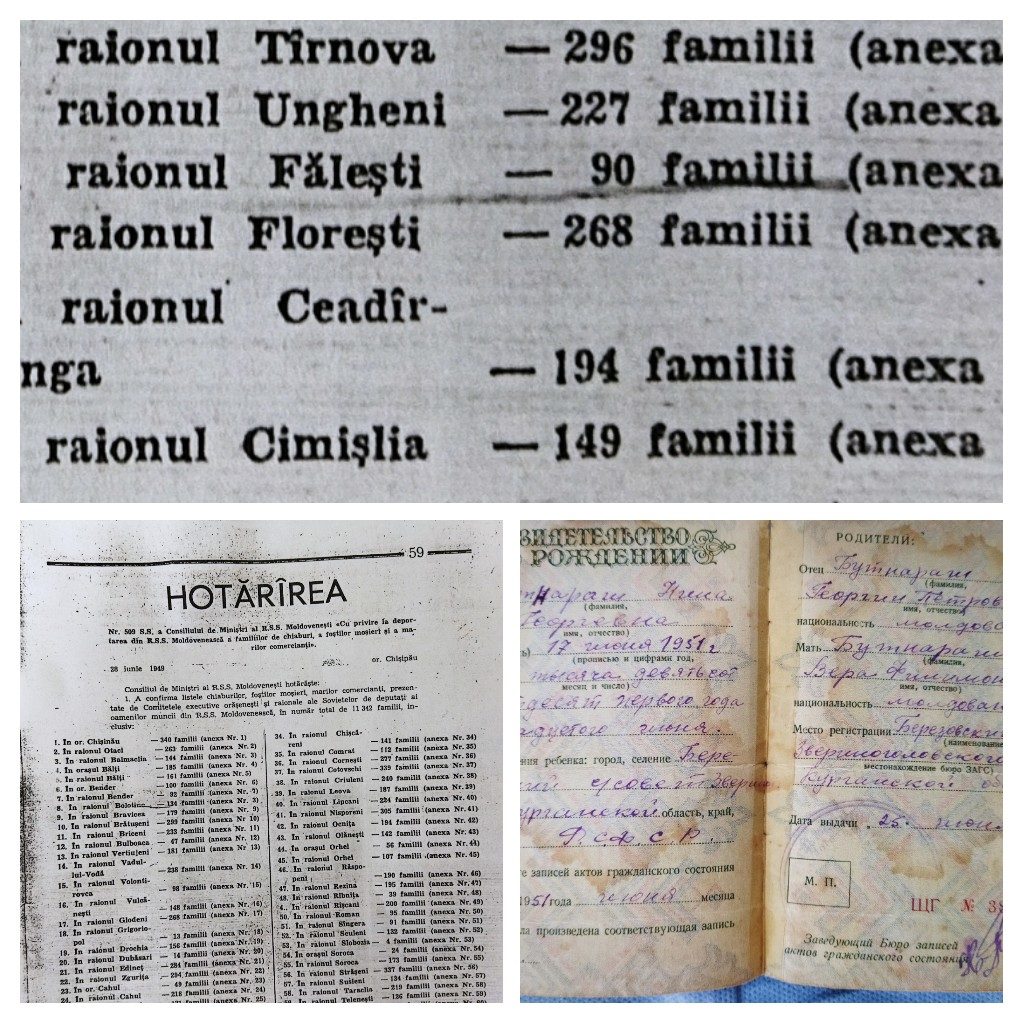 raionul Tîrnova — 296 familii (anexa
raionul Ungheni — 227 familii (anexa
raionul Fălești — 90 familii (anexa
raionul Florești — 268 familii (anexa
raionul Ceadîr-
nga — 194 familii (anexa
raionul Cimișlia — 149 familii (anexa
59
HOTĂRÎREA
Nr. 509 S.S. a Consiliului de Miniștri al R.S.S. Moldovenești «Cu privire la depor-
tarea din R.S.S. Moldovenească a familiilor de chiaburi, a foștilor moșieri și a ma-
rilor comercianți».
28 iunie 1949 or. Chișinău
Consiliul de Miniștri al R.S.S. Moldovenești hotărăște:
1. A confirma listele chiaburilor, foștilor moșieri, marilor comercianți, prezen-
tate de Comitetele executive orășenești și raionale ale Sovietelor de deputați al
oamenilor muncii din R.S.S. Moldovenească, în număr total de 11 342 familii, in-
clusiv:
1. În or. Chișinău — 340 familii (anexa Nr. 1)
2. În raionul Otaci — 263 familii (anexa Nr. 2)
3. În raionul Balmaclia — 144 familii (anexa Nr. 3)
4. În orașul Bălți — 185 familii (anexa Nr. 4)
5. În raionul Bălți — 161 familii (anexa Nr. 5)
6. În or. Bender — 100 familii (anexa Nr. 6)
7. În raionul Bender — 92 familii (anexa Nr. 7)
8. În raionul Bolotin — 134 familii (anexa Nr. 8)
9. În raionul Bravicea — 179 familii (anexa Nr. 9)
10. În raionul Brătușeni — 299 familii (anexa Nr. 10)
11. În raionul Briceni — 233 familii (anexa Nr. 11)
12. În raionul Bulboaca — 47 familii (anexa Nr. 12)
13. În raionul Vertiujeni — 181 familii (anexa Nr. 13)
14. În raionul Vadul-
lui-Vodă — 238 familii (anexa Nr. 14)
15. În raionul Volonti-
rovca — 98 familii (anexa Nr. 15)
16. În raionul Vulcă-
nești — 148 familii (anexa Nr. 16)
17. În raionul Glodeni — 268 familii (anexa Nr. 17)
18. În raionul Grigorio-
pol — 13 familii (anexa Nr. 18)
19. În raionul Drochia — 156 familii (anexa Nr. 19)
20. În raionul Dubăsari — 14 familii (anexa Nr. 20)
21. În raionul Edineț — 284 familii (anexa Nr. 21)
22. În raionul Zgurița — 294 familii (anexa Nr. 22)
23. În or. Cahul — 49 familii (anexa Nr. 23)
24. În raionul Cahul — 218 familii (anexa Nr. 24)
34. În raionul Chișcă-
reni — 141 familii (anexa Nr. 34)
35. În raionul Comrat — 112 familii (anexa Nr. 35)
36. În raionul Cornești — 277 familii (anexa Nr. 36)
37. În raionul Cotovschi — 339 familii (anexa Nr. 37)
38. În raionul Criuleni — 240 familii (anexa Nr. 38)
39. În raionul Leova — 187 familii (anexa Nr. 39)
40. În raionul Lipcani — 224 familii (anexa Nr. 40)
41. În raionul Nisporeni — 305 familii (anexa Nr. 41)
42. În raionul Ocnița — 194 familii (anexa Nr. 42)
43. În raionul Olănești — 142 familii (anexa Nr. 43)
44. În orașul Orhei — 56 familii (anexa Nr. 44)
45. În raionul Orhei — 107 familii (anexa Nr. 45)
46. În raionul Răspo-
peni — 190 familii (anexa Nr. 46)
47. În raionul Rezina — 195 familii (anexa Nr. 47)
48. În raionul Rîbnița — 39 familii (anexa Nr. 48)
49. În raionul Rîșcani — 200 familii (anexa Nr. 49)
50. În raionul Roman — 95 familii (anexa Nr. 50)
51. În raionul Sîngera — 91 familii (anexa Nr. 51)
52. În raionul Sculeni — 132 familii (anexa Nr. 52)
53. În raionul Slobozia — 4 familii (anexa Nr. 53)
54. În orașul Soroca — 24 familii (anexa Nr. 54)
55. În raionul Soroca — 173 familii (anexa Nr. 55)
56. În raionul Strășeni — 337 familii (anexa Nr. 56)
57. În raionul Susleni — 134 familii (anexa Nr. 57)
58. În raionul Taraclia — 219 familii (anexa Nr. 58)
În raionul Telenești — 126 familii (anexa Nr. 59)
ВИДЕТЕЛЬСТВО
РОЖДЕНИИ
Нина
(фамилия,
Георгиевна
имя, отчество)
17 июня 1951 г
(прописью и цифрами год,
тысяча девятьсот
месяц и число)
первого года
июня.
ния ребенка: город, селение Бере
с/совет Зверин
область, край,
Р.С.Ф.С.Р.
те записей актов гражданского состояния
1951 года июня месяца
ла произведена соответствующая запись
РОДИТЕЛИ:
Отец Бутнараш
(фамилия,
Георгий Петров
имя, отчество)
национальность молдова
Мать Бутнараш
(фамилия,
Вера Филимон
имя, отчество)
национальность молдован
Место регистрации Березовский
(наименование
Звериноголовского
местонахождение бюро ЗАГС)
Дата выдачи 25 июн
М. П.
ЩГ № 38
Заведующий Бюро записей
актов гражданского состояния